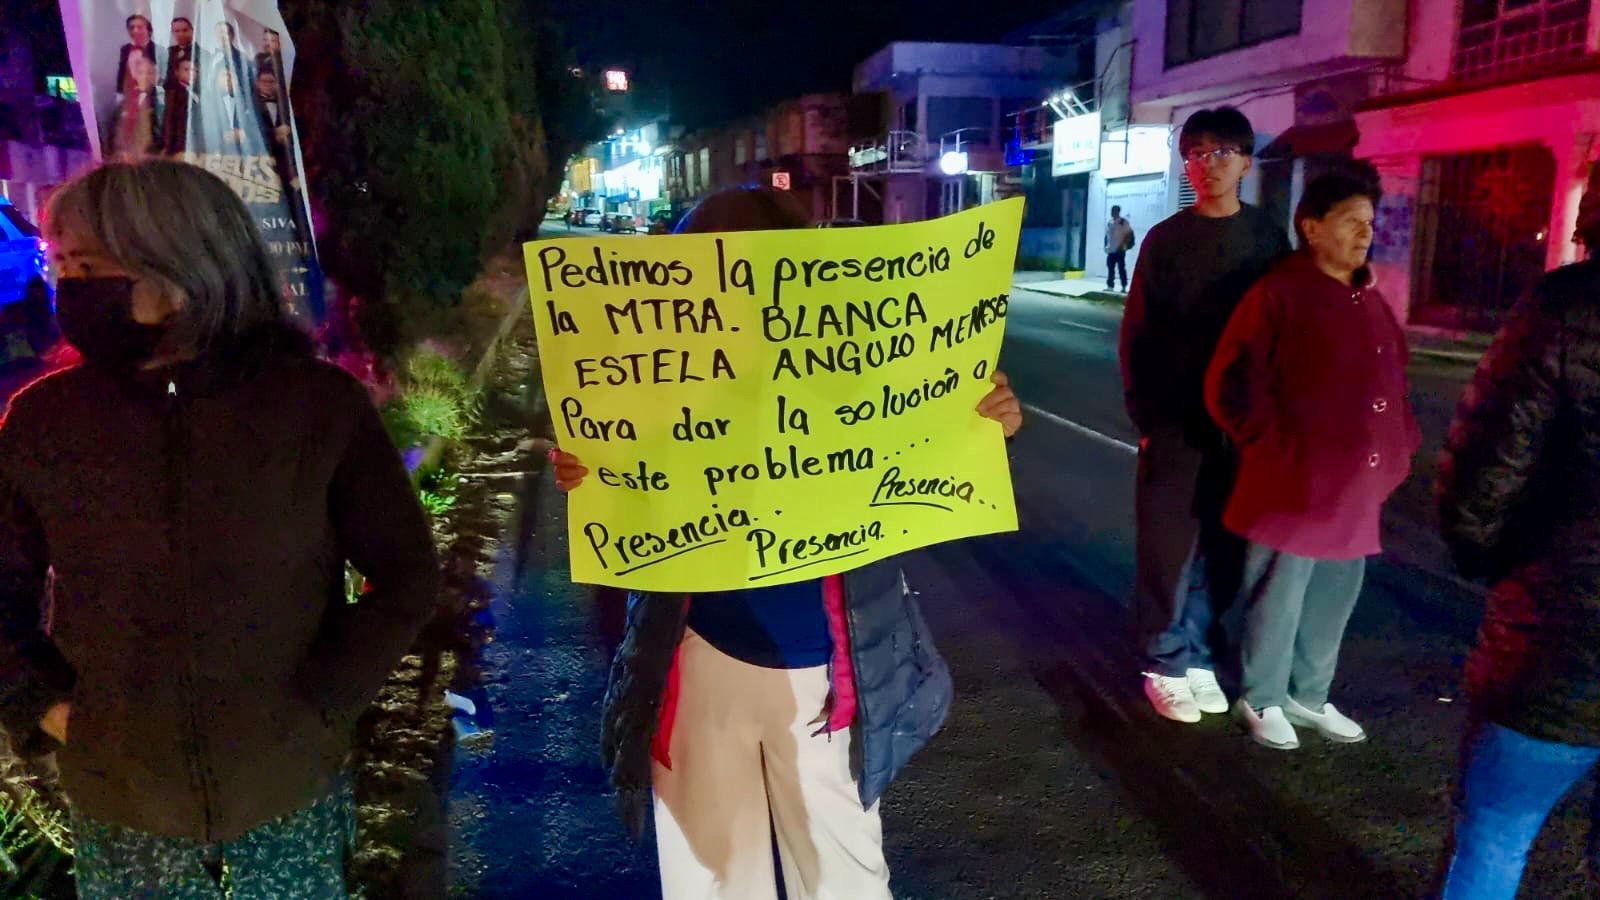 Pedimos la presencia de
la MTRA. BLANCA
ESTELA ANGULO MENESES
Para dar la solución a
este problema....
Presencia.
Presencia..
Presencia..
ANGELES
SIVA